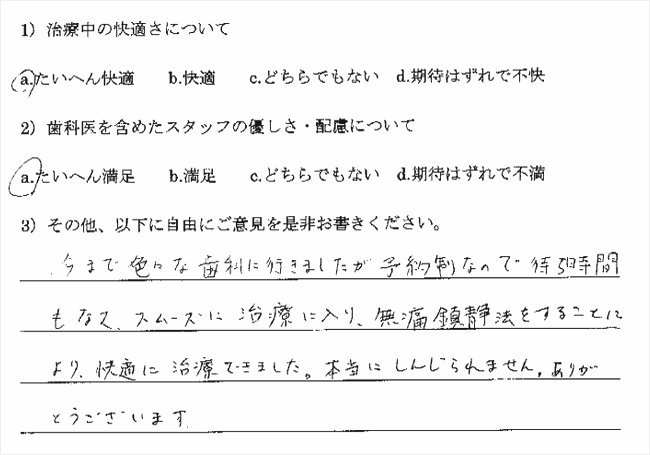 1）治療中の快適さについて
a.たいへん快適　b.快適　c.どちらでもない　d.期待はずれで不快
2）歯科医を含めたスタッフの優しさ・配慮について
a.たいへん満足　b.満足　c.どちらでもない　d.期待はずれで不満
3）その他、以下に自由にご意見を是非お書きください。
今まで色々な歯科に行きましたが予約制なので待ち時間
もなく、スムーズに治療に入り、無痛鎮静法をすることに
より、快適に治療できました。本当にしんじられません。ありが
とうございます